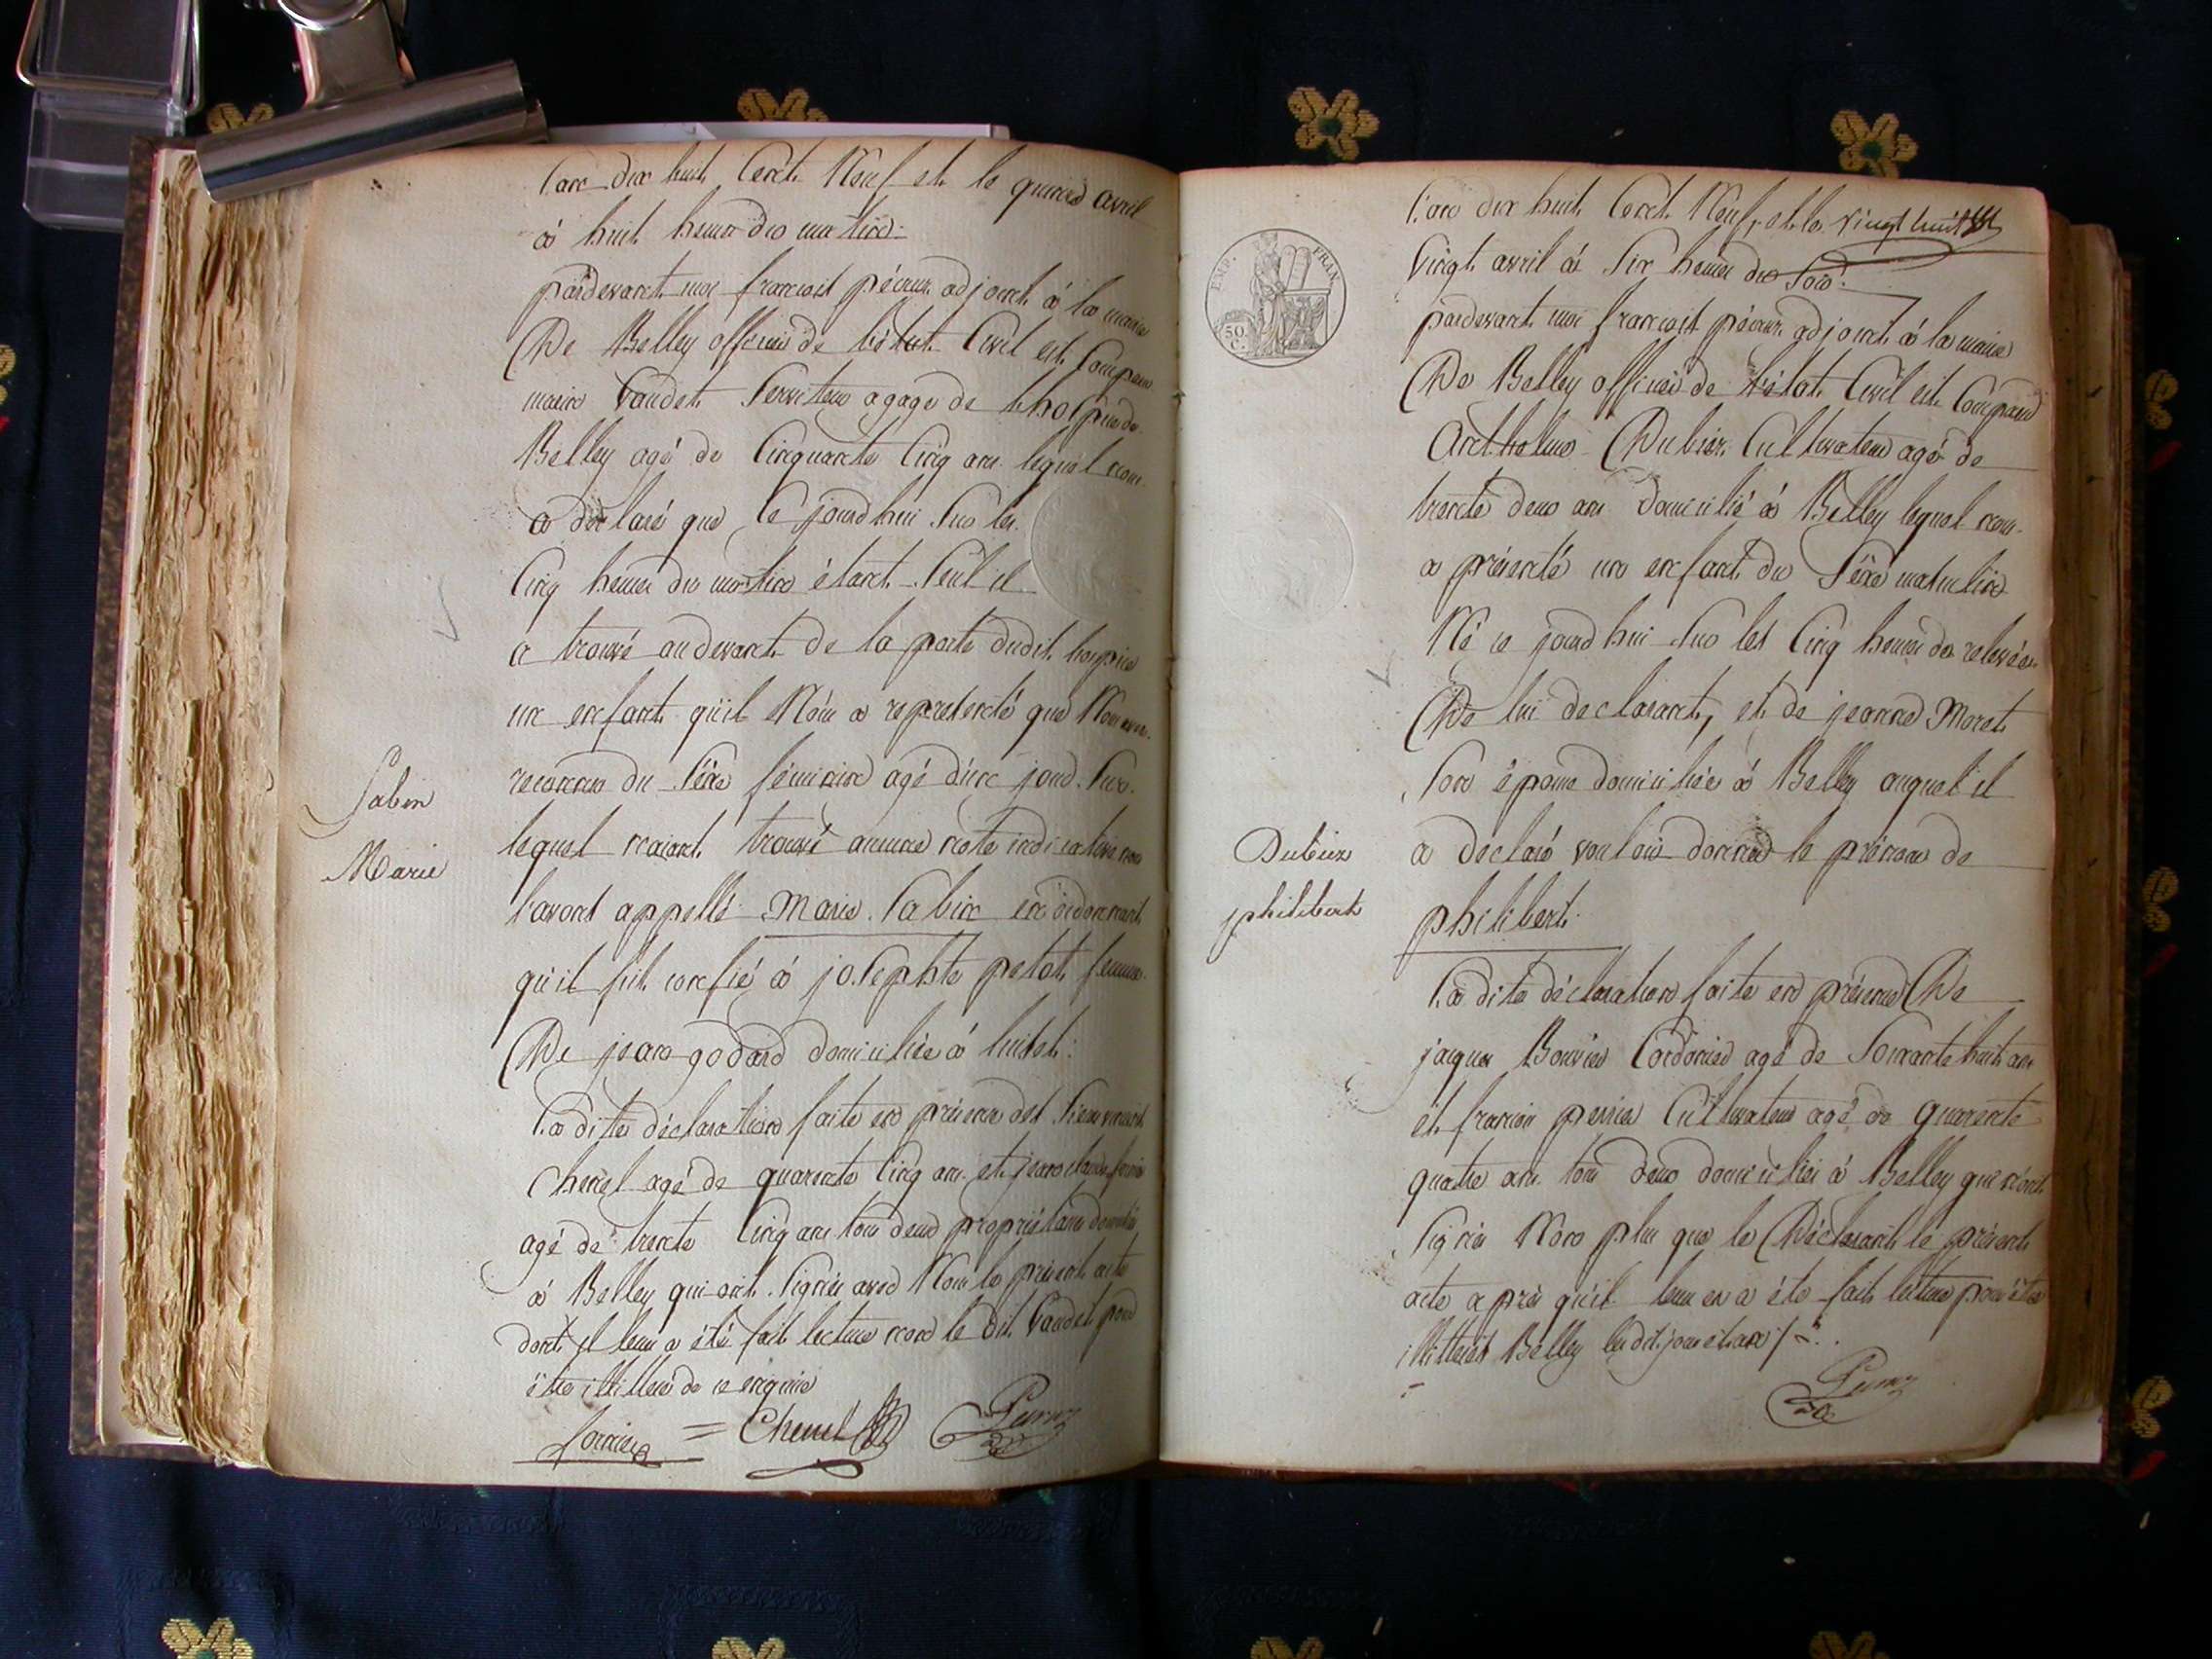 L'an dix huit Cent Neuf et le quinze avril
à huit heures du matin
pardevant moi francois péemz adjoint à la mairie
De Belley officier de l'état Civil est Comparu
Vaudet Serviteur a gage de l'hospice de
Belley agé de Cinquante Cinq ans lequel nous
a déclaré que Ce jourd'hui Sur les
Cinq heures du matin étant Seul il
a trouvé au devant de la porte dudit hospice
un enfant qu'il Nous a représenté que Nous avons
reconnu du Séxe féminin agé d'un jour Sur
lequel n'aiant trouvé aucune note indicative nous
l'avons appellé Marie Sabin en ordonnant
qu'il fut confié à josephte petot femme
De jean godard domiciliée à
La dite déclaration faite en présence des Sieurs
Chenel agé de quarante Cinq ans et jean claude
agé de trente Cinq ans tous deux propriétaires domiciliés
à Belley qui ont Signés avec Nous le présent acte
dont il leur a été fait lecture non le dit Vaudet pour
être illitteré de ce enquis
Sabin
Marie
Chenel
L'an dix huit Cent Neuf, et le vingt huit
Vingt avril à Six heures du Soir
pardevant moi francois péemz adjoint à la mairie
De Belley officier de l'état Civil est Comparu
Anthelme Dubiez Cultivateur agé de
trente deux ans domicilié à Belley lequel nous
a présenté un enfant du Séxe masculin
Né ce jourd'hui Sur les Cinq heures de relevée
De lui déclarant, et de jeanne Moret
Son épouse domiciliée à Belley auquel il
a déclaré vouloir donner le prénom de
philibert
La dite déclaration faite en présence De
jacques Bouvier Cordonier agé de Soixante huit ans
et francois perrier Cultivateur agé de quarente
quatre ans tous deux domiciliés à Belley qui n'ont
Signés Non plus que le Déclarant le présent
acte après qu'il leur en a été fait lecture pour être
illitterés Belley lesdits jour et an
Dubiez
philibert